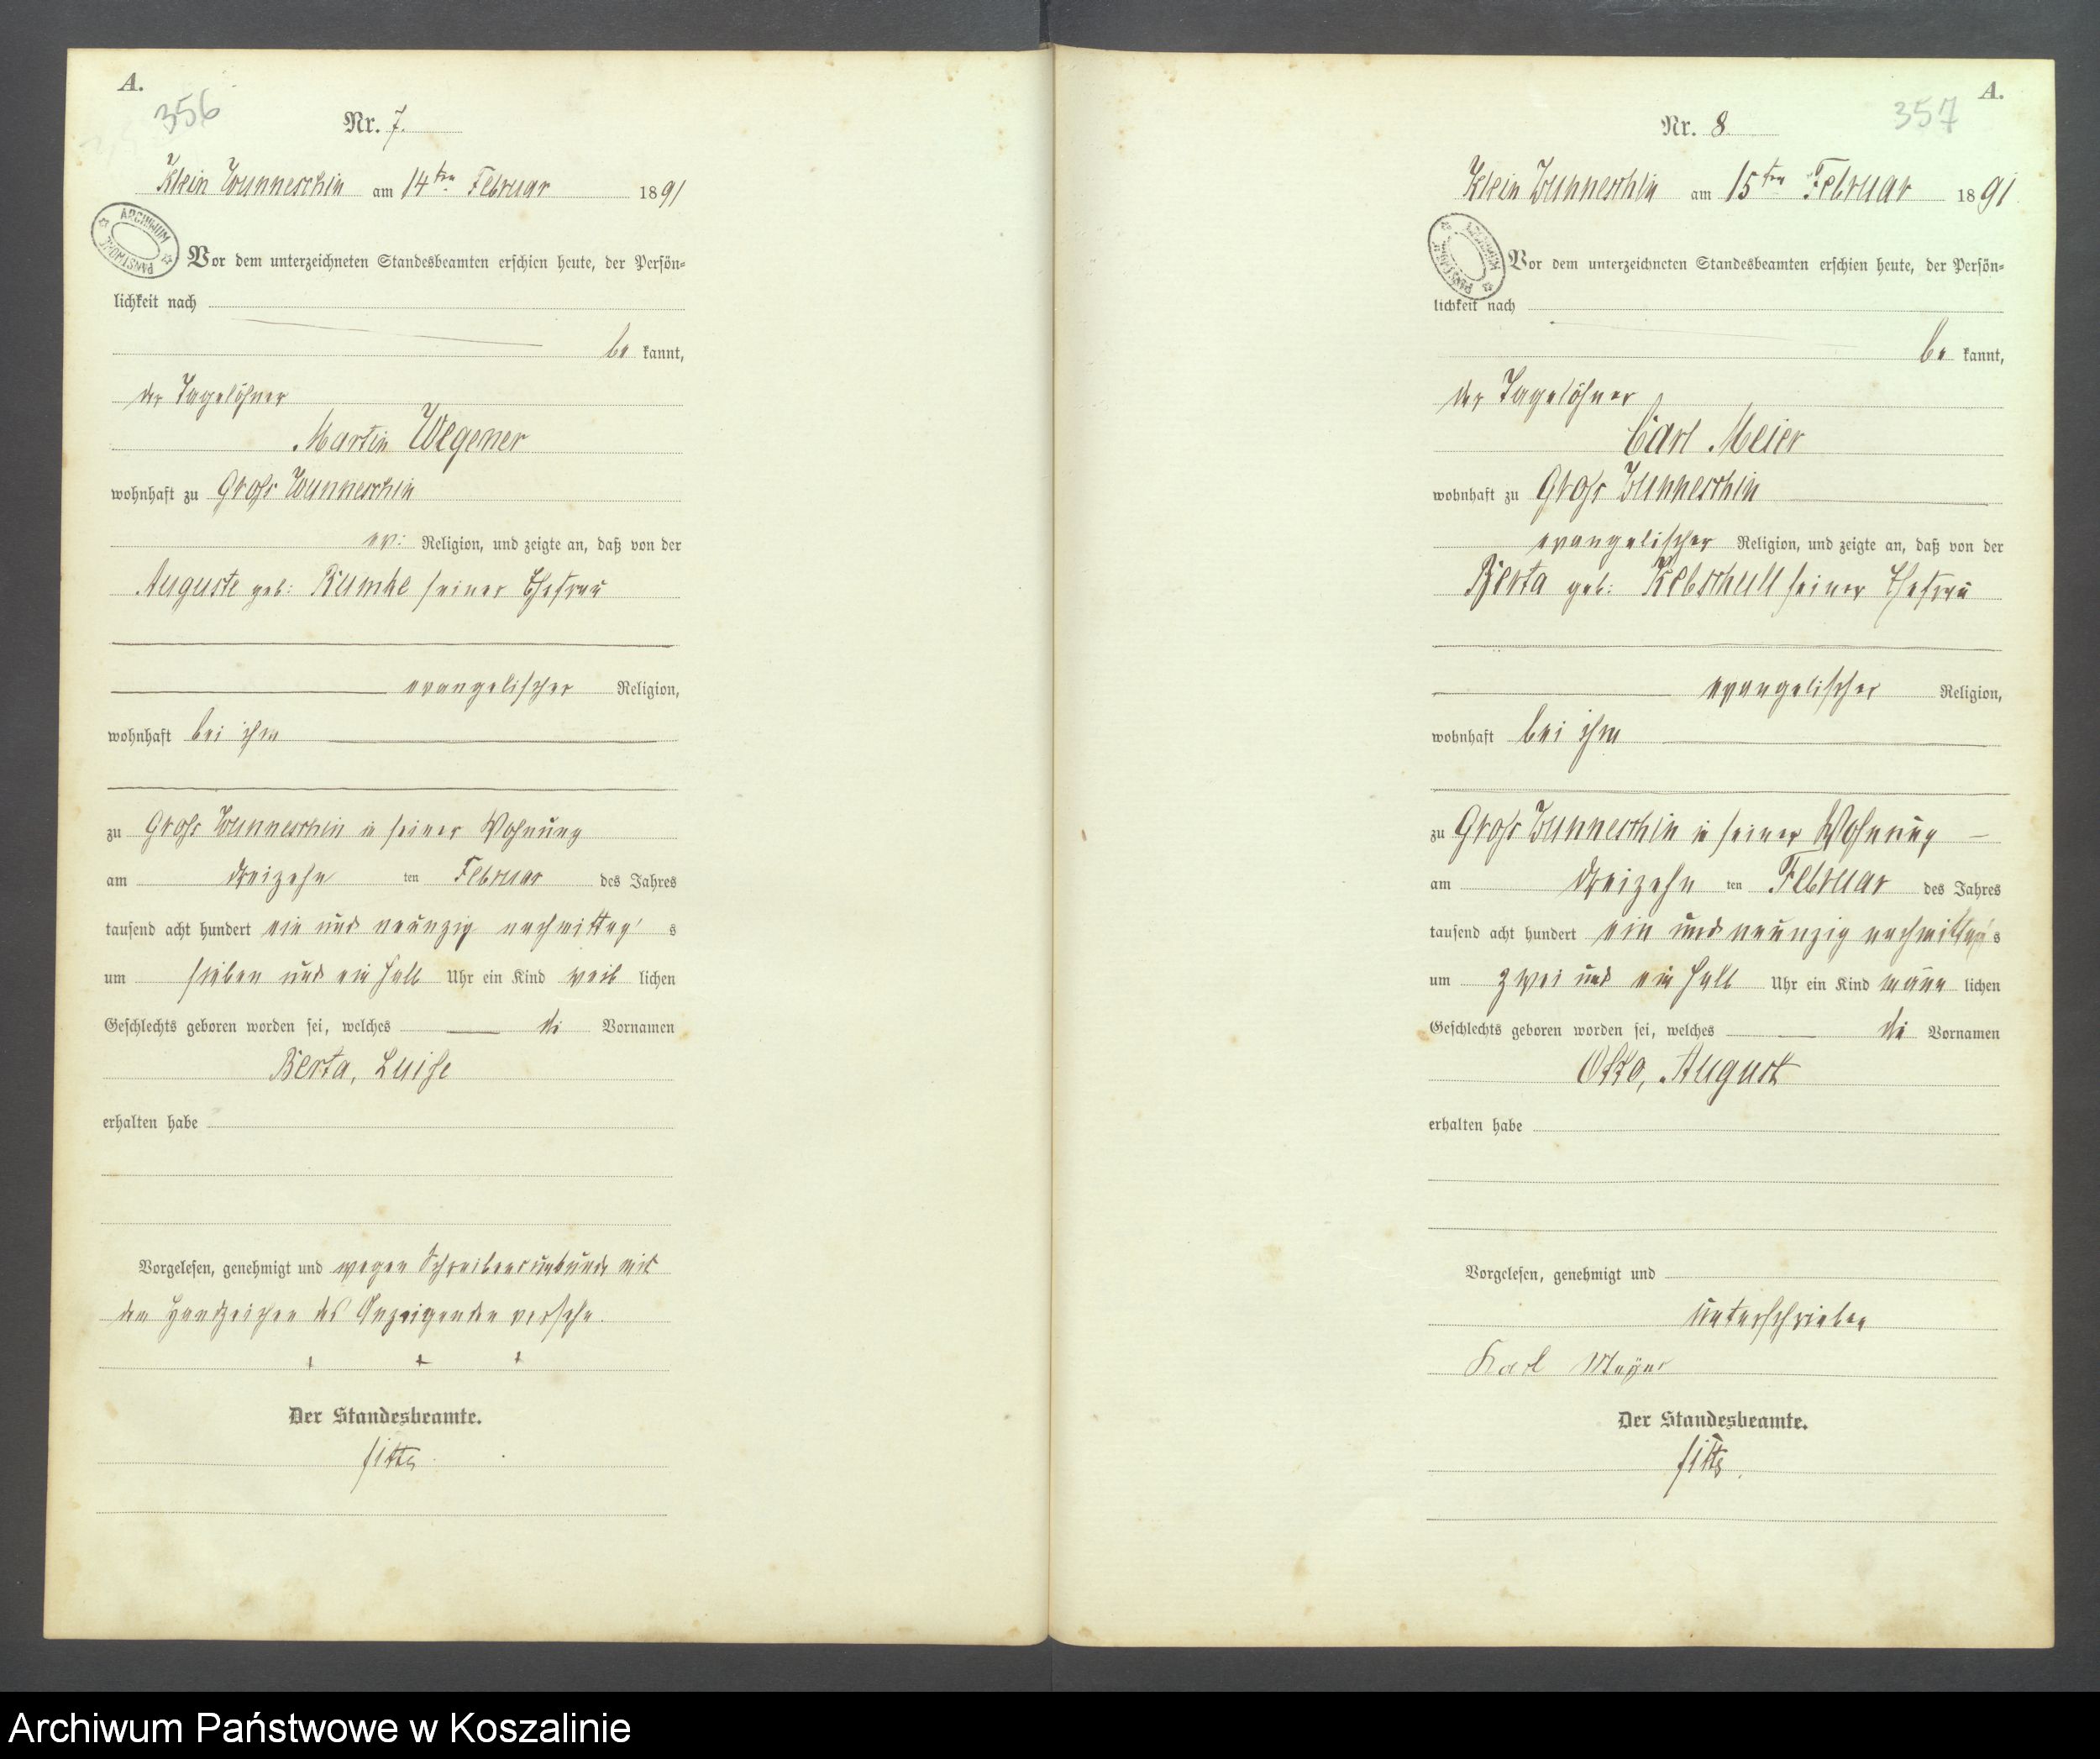 A.
356
Nr. 7.
Klein Wunneschin am 14ten Februar 1891
ARCHIWUM PAŃSTWOWE
Vor dem unterzeichneten Standesbeamten erschien heute, der Persön-
lichkeit nach
be kannt,
der Tagelöhner
Martin Wegener
wohnhaft zu Gross Wunneschin
ev: Religion, und zeigte an, daß von der
Auguste geb: Rumke seiner Ehefrau
evangelischer Religion,
wohnhaft bei ihm
zu Gross Wunneschin in seiner Wohnung
am dreizehn ten Februar des Jahres
tausend acht hundert ein und neunzig nachmittag s
um sieben und ein halb Uhr ein Kind weib lichen
Geschlechts geboren worden sei, welches die Vornamen
Berta, Luise
erhalten habe
Vorgelesen, genehmigt und wegen Schreibensunkunde mit
den Handzeichen des Anzeigenden versehn.
+ + +
Der Standesbeamte.
A.
357
Nr. 8
Klein Wunneschin am 15ten Februar 1891
Vor dem unterzeichneten Standesbeamten erschien heute, der Persön-
lichkeit nach
be kannt,
der Tagelöhner
Carl Meier
wohnhaft zu Gross Wunneschin
evangelischer Religion, und zeigte an, daß von der
Berta geb: Rebschull seiner Ehefrau
evangelischer Religion,
wohnhaft bei ihm
zu Gross Wunneschin in seiner Wohnung
am dreizehn ten Februar des Jahres
tausend acht hundert ein und neunzig nachmittag s
um zwei und ein halb Uhr ein Kind männ lichen
Geschlechts geboren worden sei, welches die Vornamen
Otto, August
erhalten habe
Vorgelesen, genehmigt und
unterschrieben
Karl Meyer
Der Standesbeamte.
Archiwum Państwowe w Koszalinie